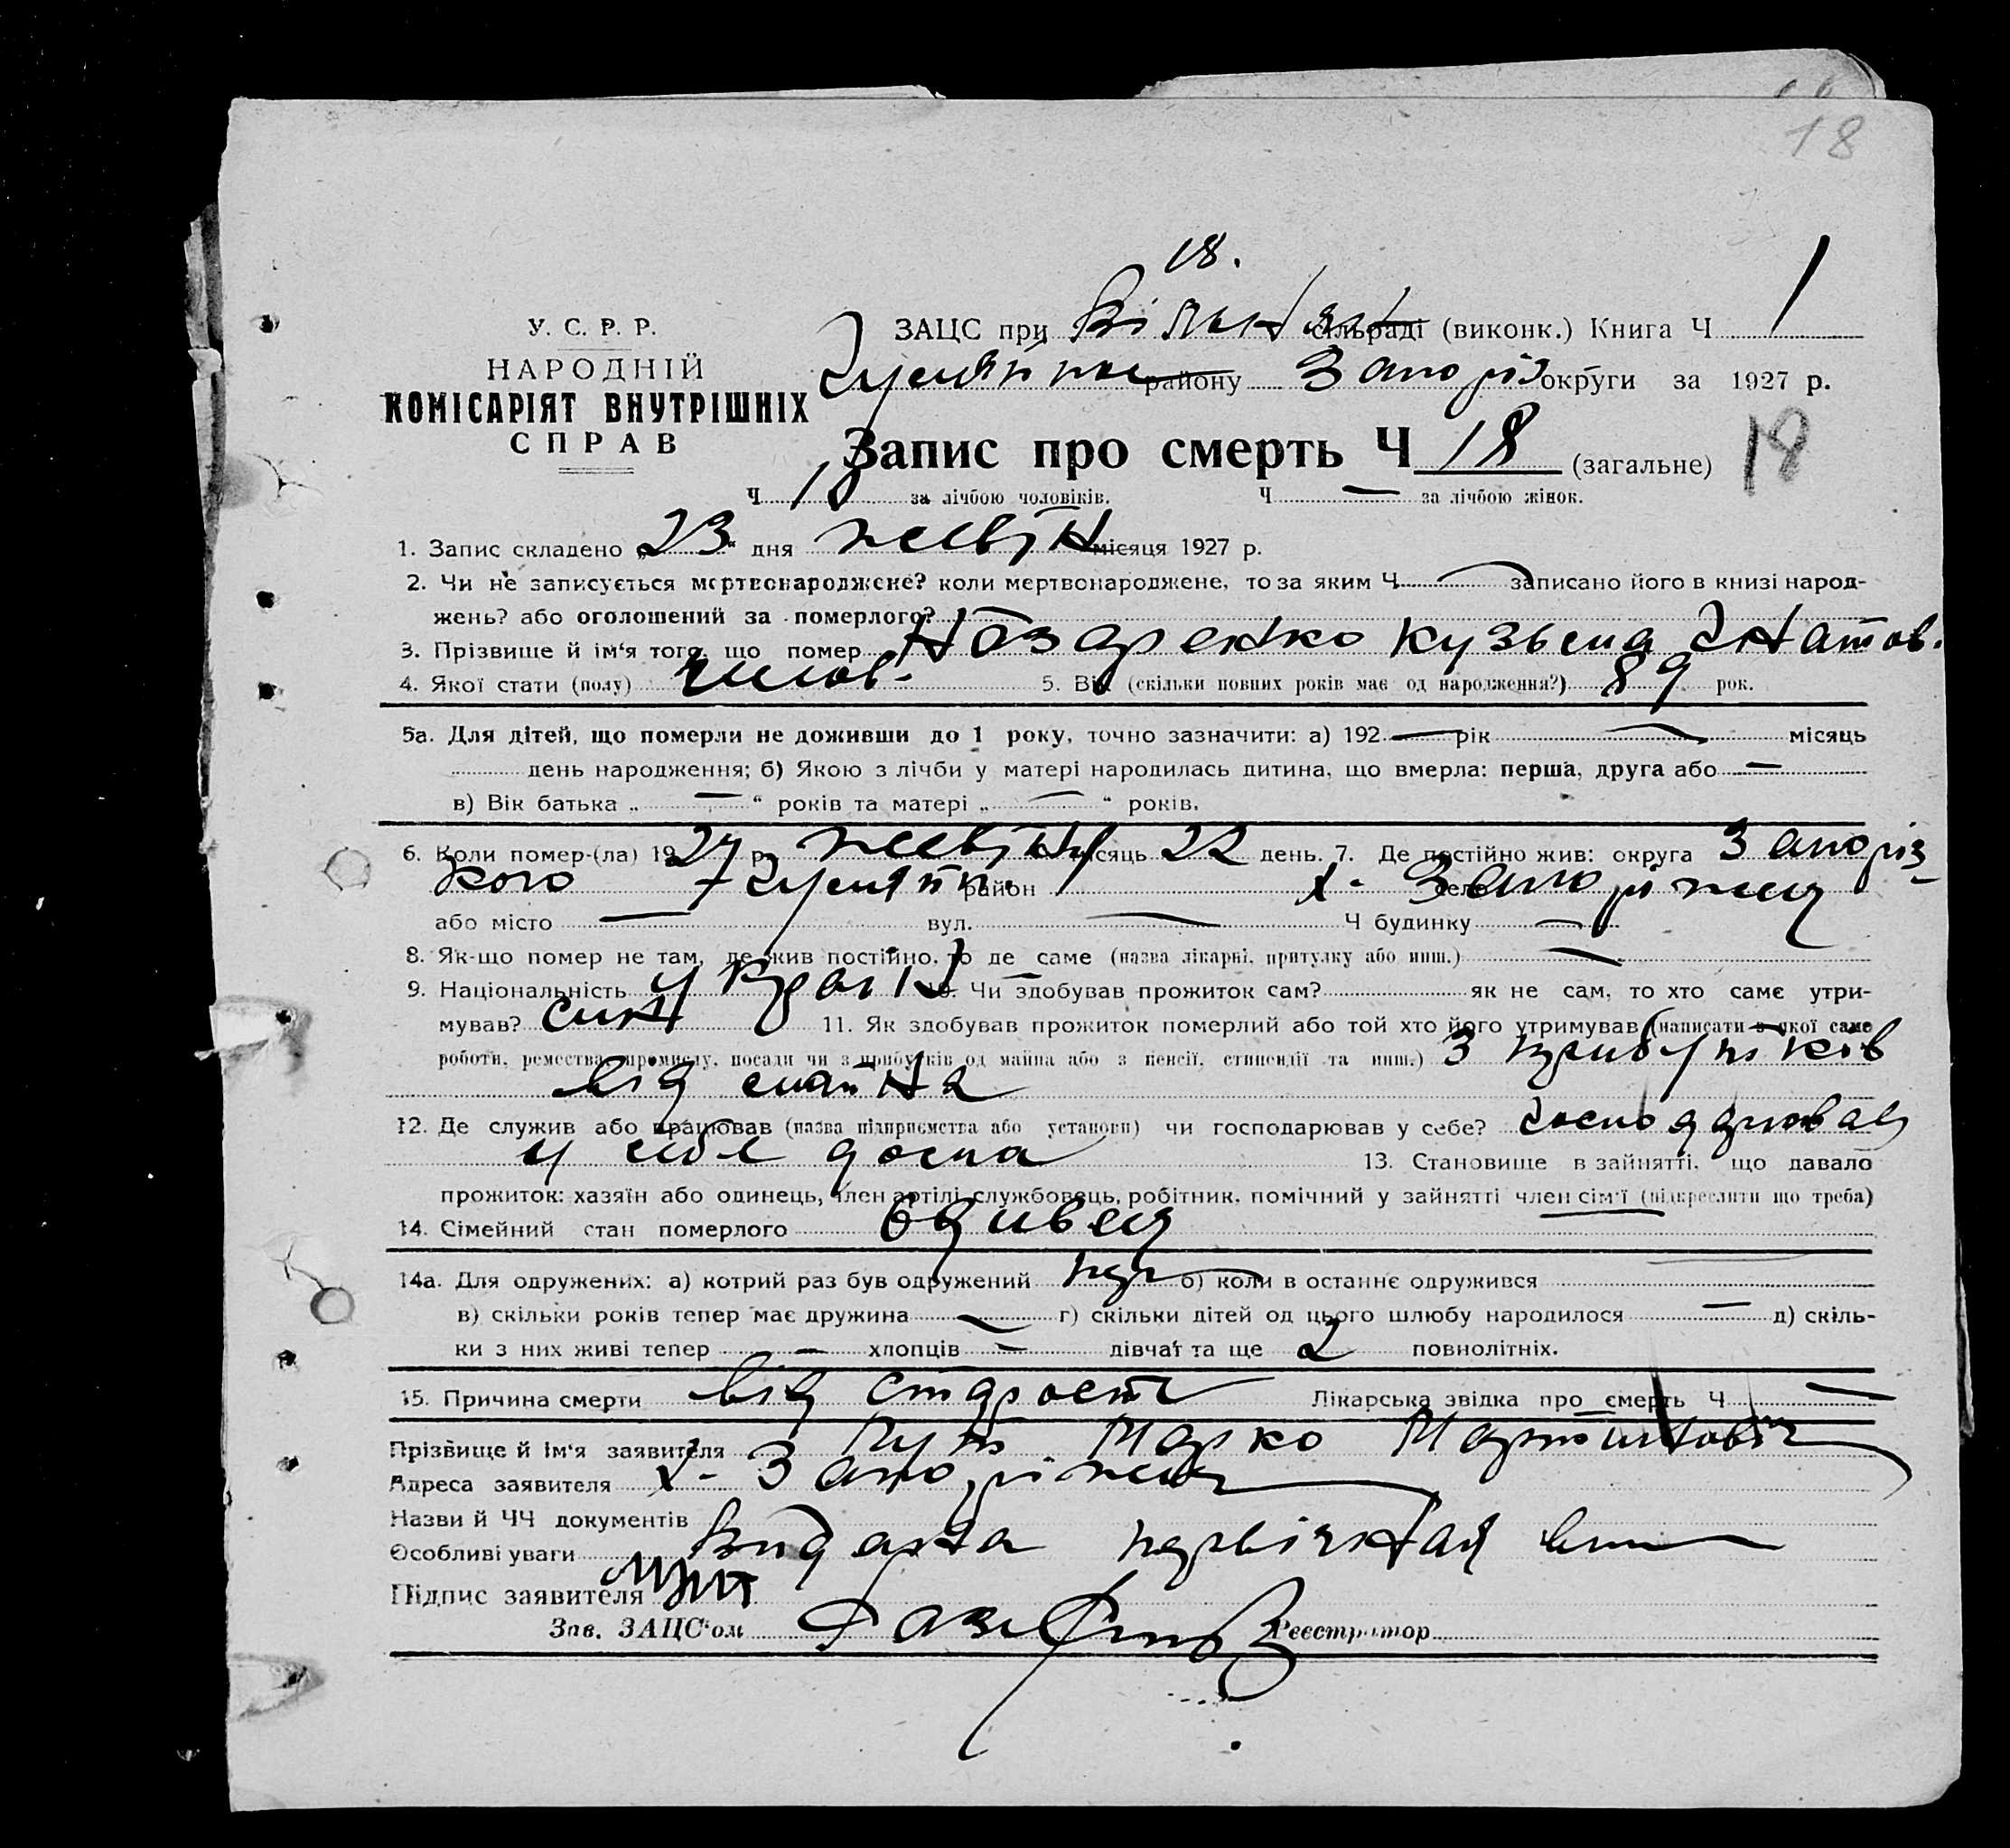 18
18.
У. С. Р. Р.
НАРОДНІЙ
КОМІСАРІЯТ ВНУТРІШНІХ
СПРАВ
ЗАЦС при Вільнян сільраді (виконк.) Книга Ч 1
району Запоріз округи за 1927 р.
Запис про смерть Ч 18 (загальне) 18
Ч 18 за лічбою чоловіків. Ч — за лічбою жінок.
1. Запис складено „23“ дня жовтн місяця 1927 р.
2. Чи не записується мертвонароджене? коли мертвонароджене, то за яким Ч — записано його в книзі народ-
жень? або оголошений за померлого?
3. Прізвище й ім‘я того, що помер Назаренко Кузьма Гнатов.
4. Якої стати (полу) чолов. 5. Вік (скільки повних років має од народження?) 89 рок.
5а. Для дітей, що померли не доживши до 1 року, точно зазначити: а) 192 — рік — місяць
день народження; б) Якою з лічби у матері народилась дитина, що вмерла: перша, друга або —
в) Вік батька „ — “ років та матері „ — “ років.
6. Коли помер-(ла) 1927 р. жовтня місяць 22 день. 7. Де постійно жив: округа Запоріз-
кого район х. село Запоріжец
або місто — вул. — Ч будинку —
8. Як-що помер не там, де жив постійно, то де саме (назва лікарні, притулку або инш.) —
9. Національність Україн 10. Чи здобував прожиток сам? як не сам, то хто саме утри-
мував? син 11. Як здобував прожиток померлий або той хто його утримував (написати з якої саме
роботи, ремества, промислу, посади чи з прибутків од майна або з пенсії, стипендії та инш.) З прибутків
від майна
12. Де служив або працював (назва підприємства або установи) чи господарював у себе? господарював
у себе дома 13. Становище в зайнятті, що давало
прожиток: хазяїн або одинець, член артілі, службовець, робітник, помічний у зайнятті член сім‘ї (підкреслити що треба)
14. Сімейний стан померлого вдивец
14а. Для одружених: а) котрий раз був одружений пер б) коли в останнє одружився
в) скільки років тепер має дружина — г) скільки дітей од цього шлюбу народилося — д) скіль-
ки з них живі тепер — хлопців — дівчат та ще 2 повнолітніх.
15. Причина смерти від старости Лікарська звідка про смерть Ч —
Прізвище й ім‘я заявителя Марко Мартинович
Адреса заявителя х. Запоріжец
Назви й ЧЧ документів
Особливі уваги Видана первічная
Підпис заявителя
Зав. ЗАЦС‘ом Реєстратор